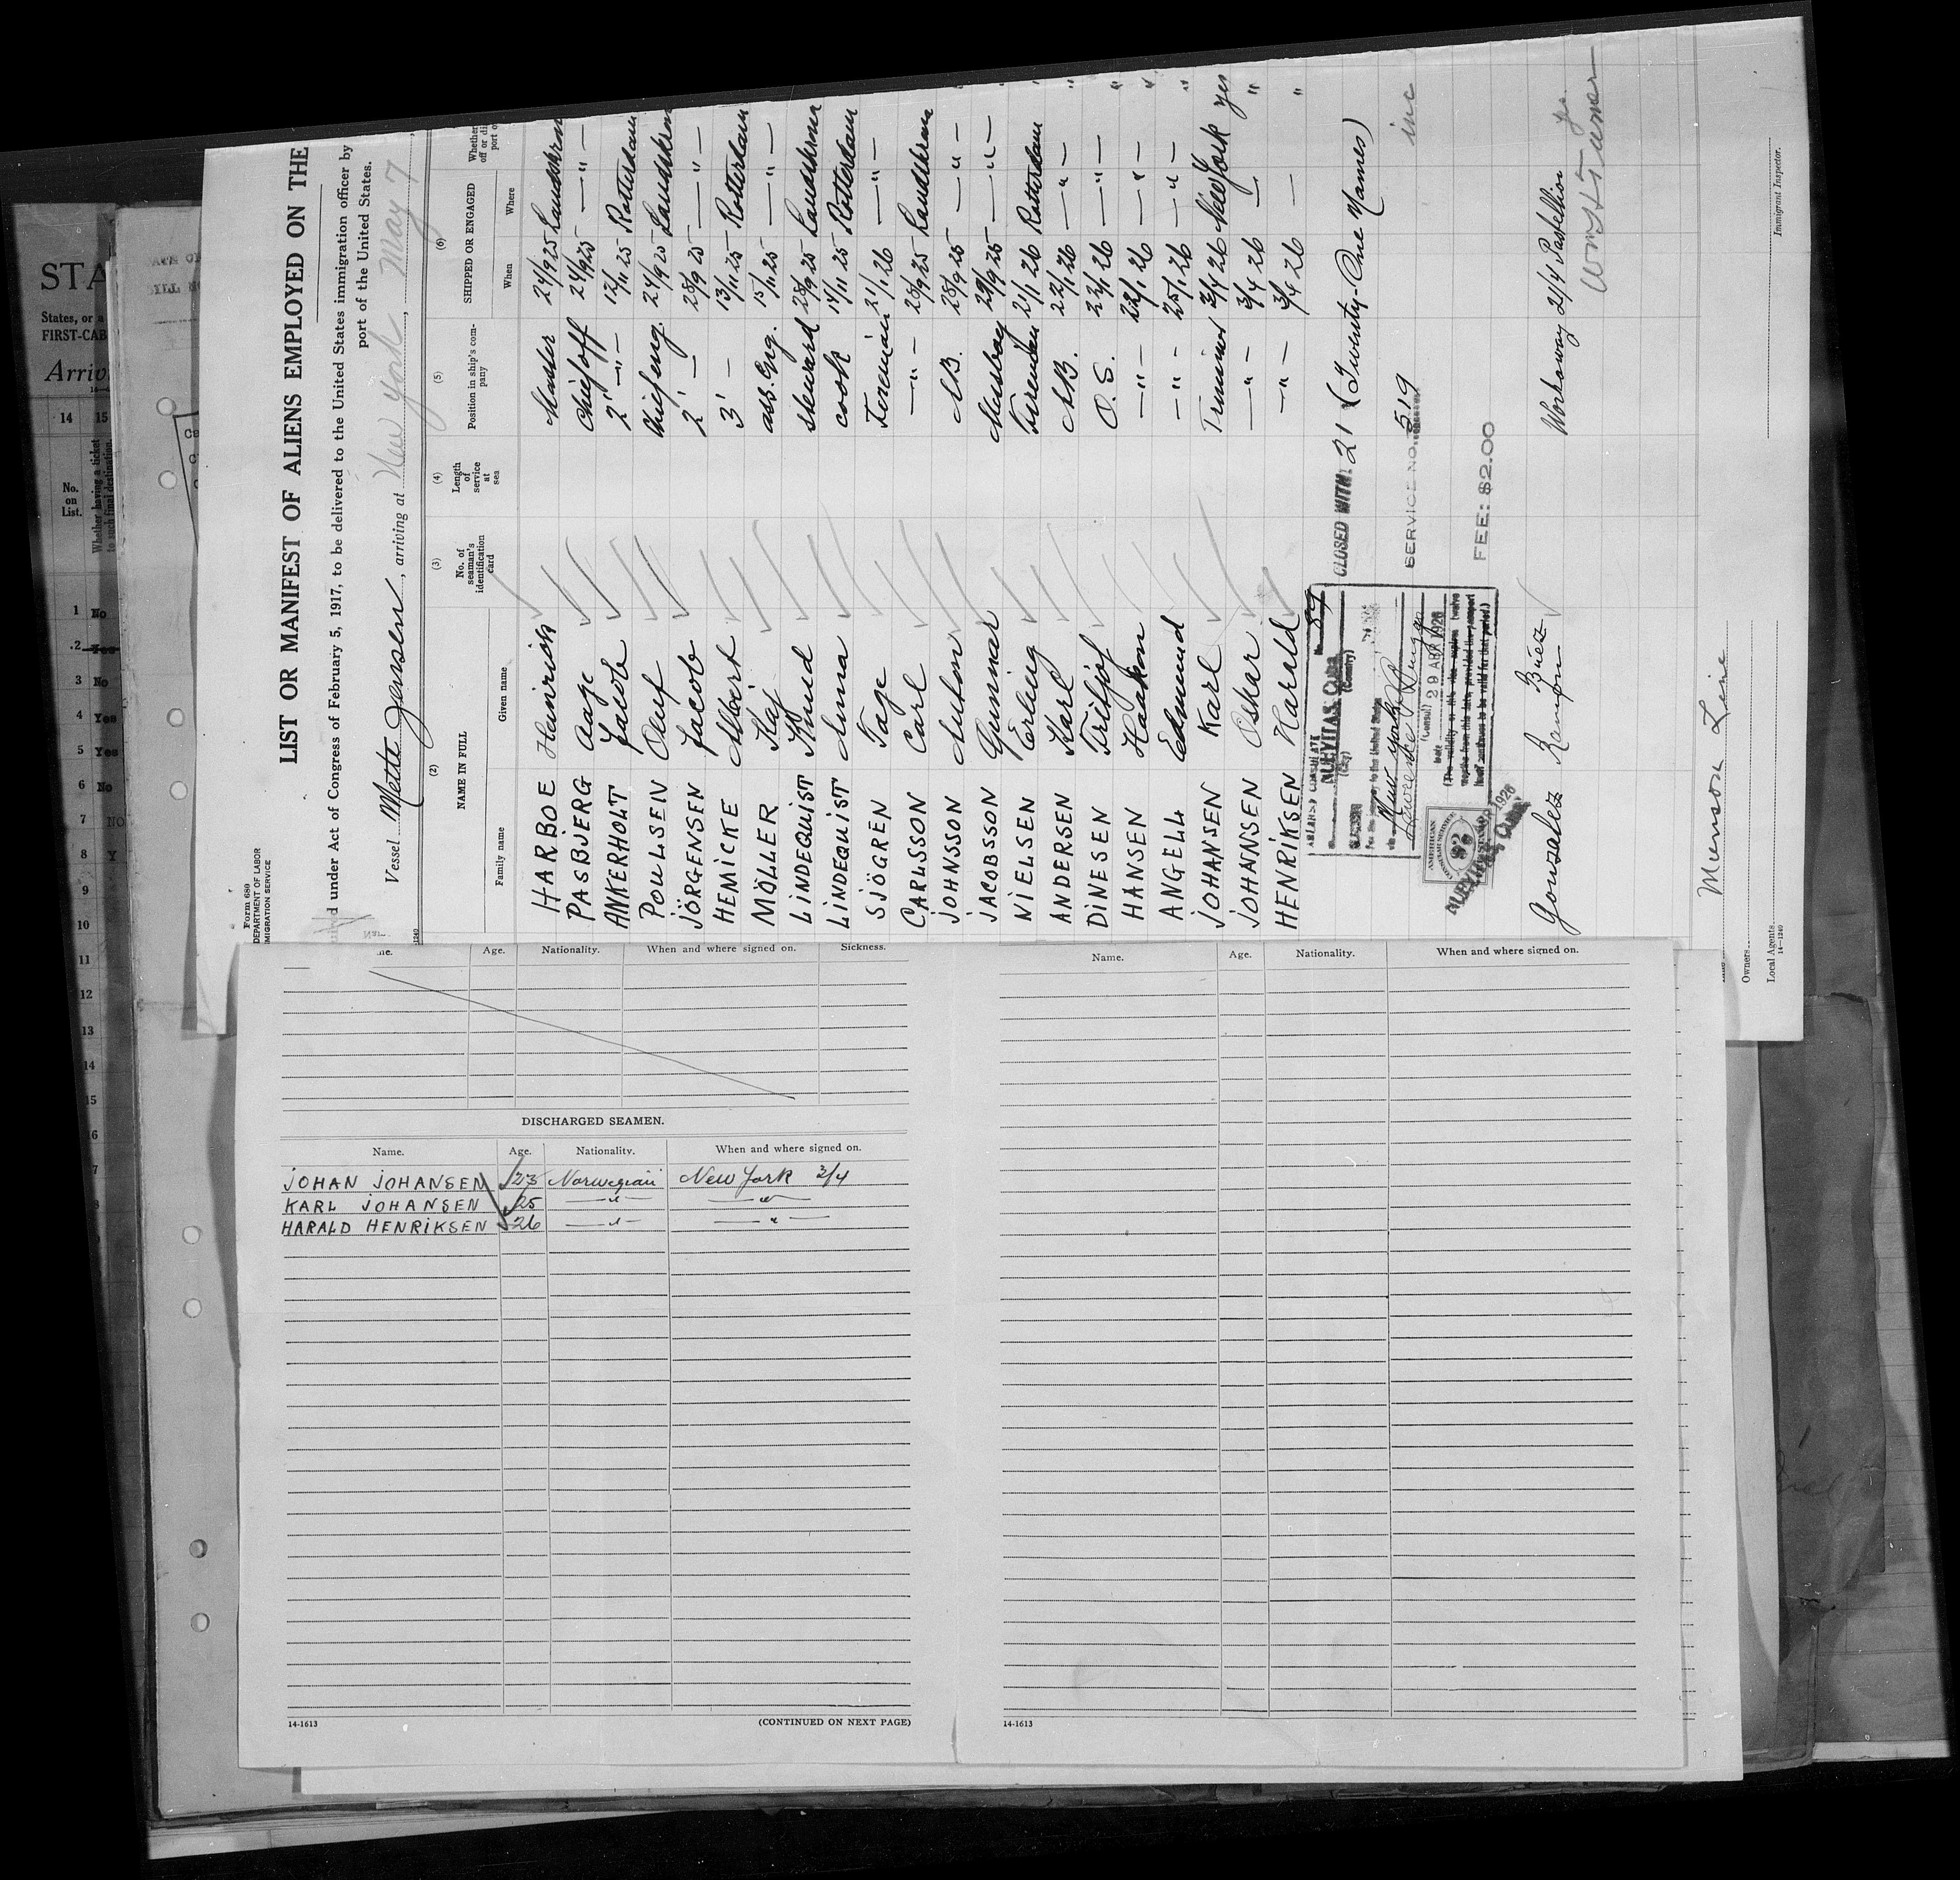 Form 680
DEPARTMENT OF LABOR
IMMIGRATION SERVICE
LIST OR MANIFEST OF ALIENS EMPLOYED ON THE
under Act of Congress of February 5, 1917, to be delivered to the United States immigration officer by
port of the United States.
Vessel Mette Jensen, arriving at New York May 7,
(2) (3) (4) (5) (6)
NAME IN FULL No. of seaman's identification card Length of service at sea Position in ship's company SHIPPED OR ENGAGED
Family name Given name When Where
HARBOE Heinrich Master 24/9 25 Landskrona
PASBJERG Aage Chief off 24/9 25 —"—
ANKERHOLT Jacob 2' —"— 12/11 25 Rotterdam
POULSEN Oluf Chief eng. 24/9 25 Landskrona
JÖRGENSEN Jacob 2' — 28/9 25 —"—
HEMICKE Albert 3' — 13/11 25 Rotterdam
MÖLLER Kaj ass. Eng. 15/11 25 —"—
LINDEQUIST Knud Steward 28/9 25 Landskrona
LINDEQUIST Anna cook 14/11 25 Rotterdam
SJÖGREN Tage Fireman 21/1 26 —"—
CARLSSON Carl —"— 28/9 25 Landskrona
JOHNSSON Anton AB. 28/9 25 —"—
JACOBSSON Gunnar Messboy 29/9 25 —"—
NIELSEN Erling Fireman 21/1 26 Rotterdam
ANDERSEN Karl AB. 22/1 26 —"—
DINESEN Fritjof O.S. 22/1 26 —"—
HANSEN Haakon —"— 22/1 26 —"—
ANGELL Edmund —"— 25/1 26 —"—
JOHANSEN Karl Trimmer 3/4 26 New York yes
JOHANNSEN Oskar —"— 3/4 26 — "
HENRIKSEN Harald —"— 3/4 26 — "
AMERICAN CONSULATE No. 89
NUEVITAS, Cuba
(City) (Country)
For the journey to the United States
via New York
(Consul)
Date 29 APR 1926
(The validity of this visa expires twelve
months from this date, provided the passport
itself continues to be valid for that period.)
AMERICAN
CONSULAR SERVICE
$2
CLOSED WITH 21 (Twenty-One Names)
SERVICE NO. 519
inc
FEE: $2.00
Gonsalez Ramon Buez Workaway 2/4 Pastellion yes
Munson Line
Owners
Local Agents
14—1240
Immigrant Inspector.
STA
States, or a
FIRST-CAB
Arriv
14 15
No.
on
List.
Whether having a ticket
to such final destination
1 No
2 Yes
3 No
4 Yes
5 Yes
6 No
7 NO
8 Y
9
10
11
12
13
14
15
6
7
Age. Nationality. When and where signed on. Sickness.
DISCHARGED SEAMEN.
Name. Age. Nationality. When and where signed on.
JOHAN JOHANSEN 23 Norwegian New York 3/4
KARL JOHANSEN 25 —"— —"—
HARALD HENRIKSEN 26 —"— —"—
14-1613 (CONTINUED ON NEXT PAGE)
Name. Age. Nationality. When and where signed on.
14-1613